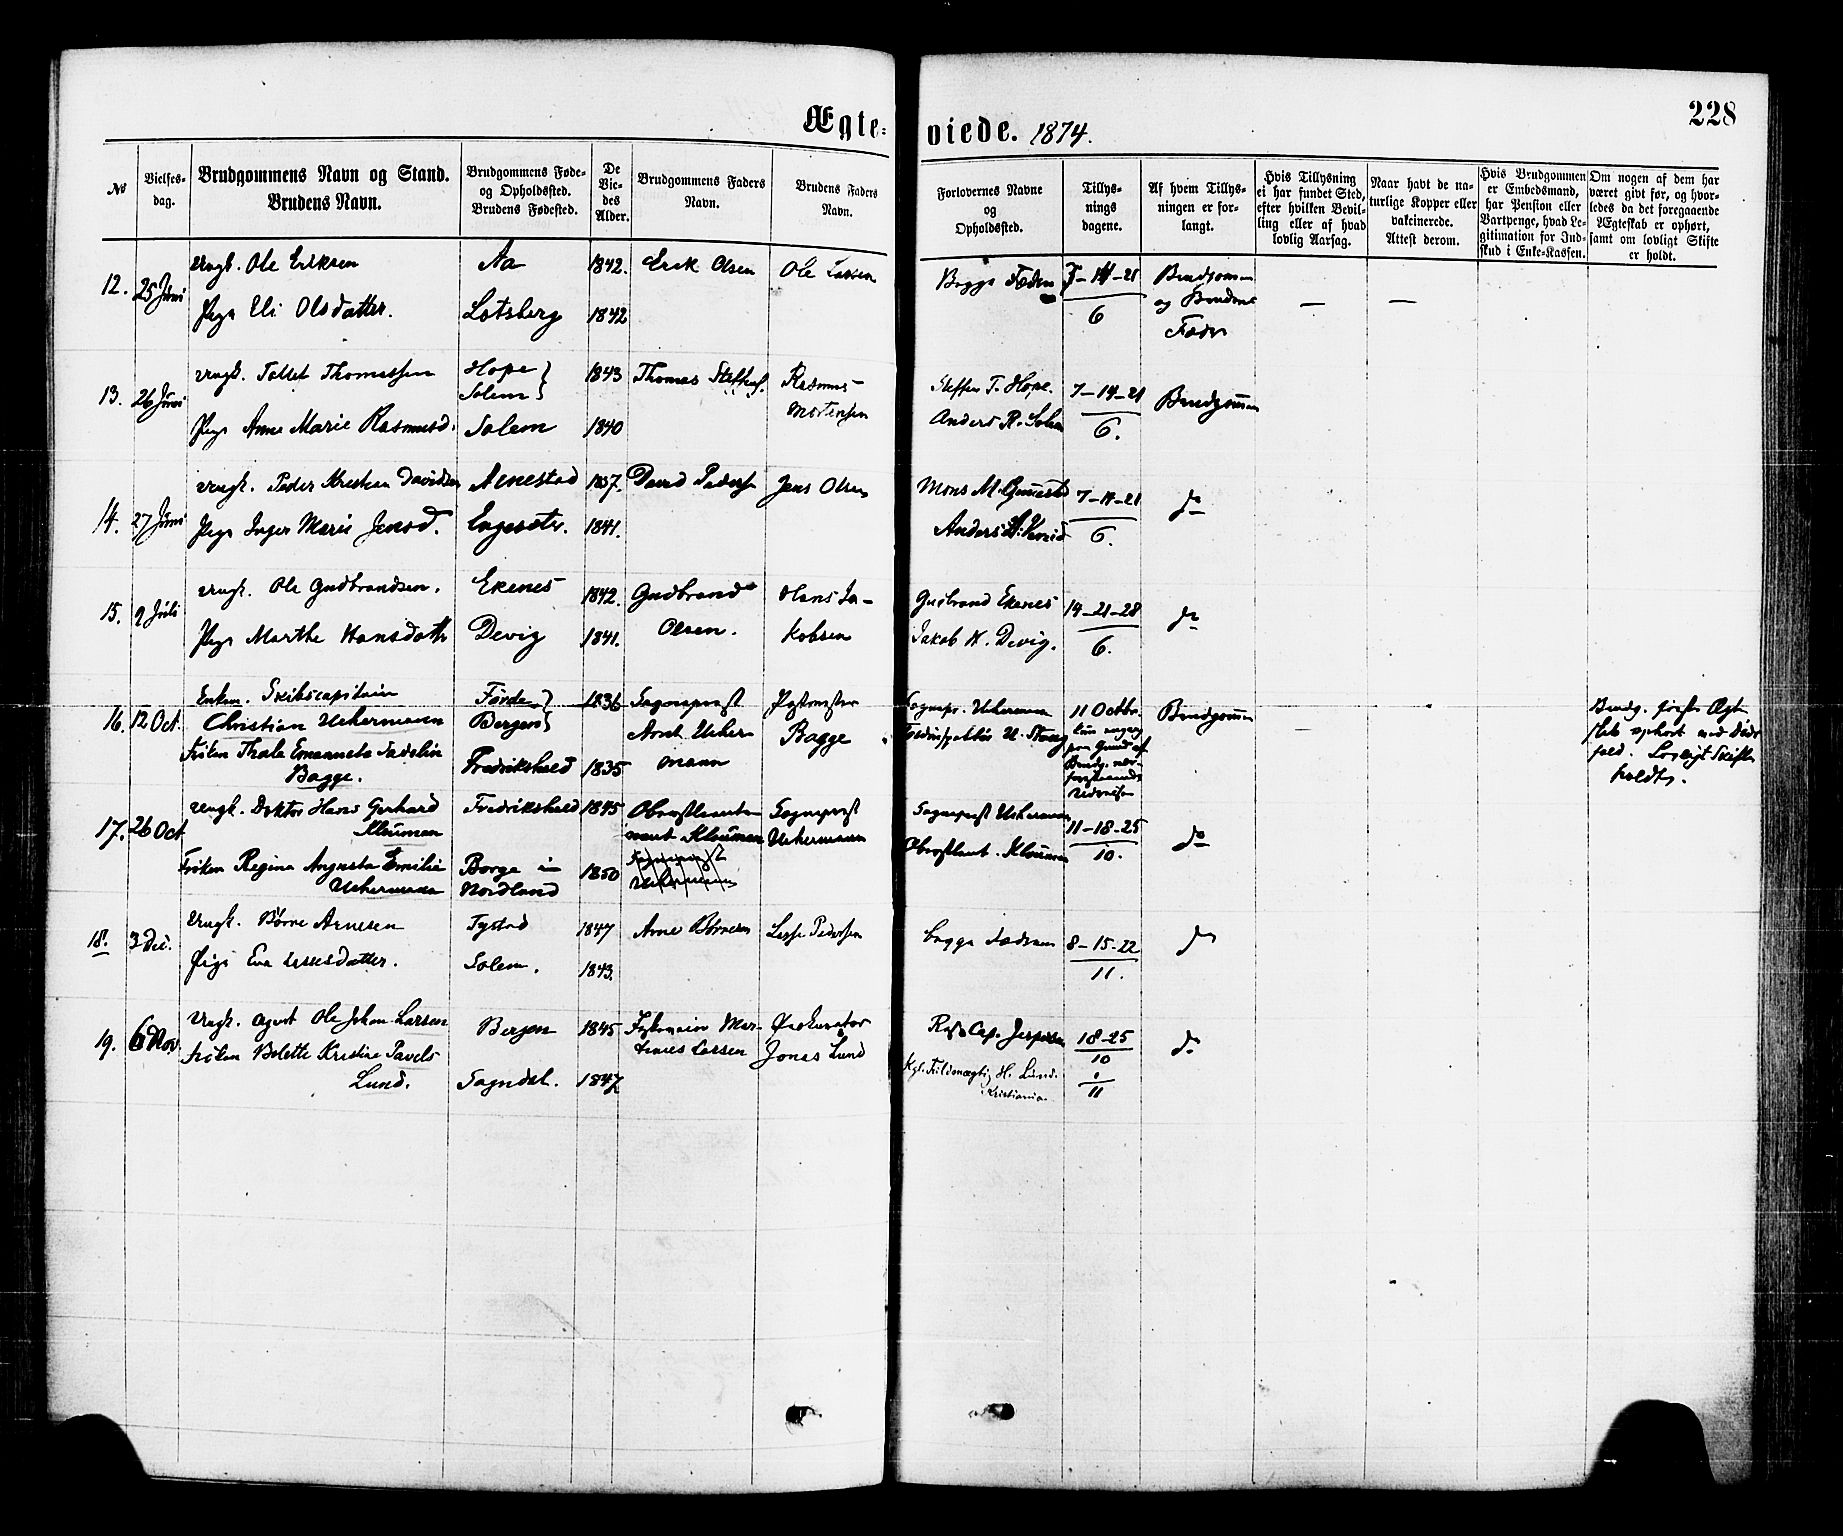 Ægte-
viede. 1874.
228
No
Vielses-
dag.
Brudgommens Navn og Stand.
Brudens Navn.
Brudgommens Føde-
og Opholdssted.
Brudens Fødested.
De
Vie-
des
Alder.
Brudgommens Faders
Navn.
Brudens Faders
Navn.
Forlovernes Navne
og
Opholdssted.
Tillys-
nings
dagene.
Af hvem Tillys-
ningen er for-
langt.
Hvis Tillysning
ei har fundet Sted,
efter hvilken Bevil-
ling eller af hvad
lovlig Aarsag.
Naar havt de na-
turlige Kopper eller
vakcinerede.
Attest derom.
Hvis Brudgommen
er Embedsmand,
har Pension eller
Vartpenge, hvad Le-
gitimation for Ind-
skud i Enke-Kassen.
Om nogen af dem har
været givt før, og hvor-
ledes da det foregaaende
Ægteskab er ophørt,
samt om lovligt Skifte
er holdt.
12. 25 Juni
Ungk. Ole Eriksen
Pige Eli Olsdatter.
Aa
Lotsberg
1842.
1842
Erik Olsen
Ole Larsen
Begge Fædre
7-14-21
6
Brudgommen
og Brudens
Fader
13. 26 Juni
Ungk. Tollet Thomassen
Pige Anne Marie Rasmusd.
Hope
Solem
Solem
1843
1840
Thomas Steffens.
Rasmus
Mortensen
Steffen T. Hope.
Anders R. Solem
7-14-21
6.
Brudgommen
14. 27 Juni
Ungk. Peder Kristian Davidsen
Pige Inger Marie Jensd.
Arnestad
Engesæter.
1837.
1841.
David Peders.
Jens Olsen
Mons M.
Anders
7-14-21
6.
do
15. 9 Juli
Ungk. Ole Gudbrandsen.
Pige Marthe Hansdatter
Ekenes
Devig
1842.
1841.
Gudbrand
Olsen.
Hans Ja-
kobsen
Gudbrand Ekenes
Jakob H. Devig.
14-21-28
6.
do
16. 12 Oct.
Enkem. Skibscapitain
Christian Uchermann
Frøken Thale Emanuela
Bagge.
Førde
Bergen
Fredrikshald
1836
1835
Sogneprest
Arnt Ucher-
mann
Postmester
Bagge
Sognepr. Uchermann
11 Octbr.
Brudgommen
Brudg. første Ægte-
skab ophørt ved Døds-
fald. Lovligt Skifte
holdt.
17. 26 Oct
Ungk. Doktor Hans Gerhard
Klouman
Frøken Regina Augusta Emilie
Uchermann
Fredrikshald
Borge i
Nordland
1845
1850
Oberstlieute-
nant Klouman
Sogneprest
Uchermann
Sogneprest Uchermann
Oberstlieut. Klouman
11-18-25
10.
do
18. 3 Dec.
Ungk. Børre Arnesen
Pige Eva Lassesdatter.
Tystad
Solem.
1847
1843.
Arne Børresen
Lasse Pedersen
begge Fædrene
8-15-22
11.
do
19. 6 Nov
Ungk. Agent Ole Johan Larsen
Frøken Bolette Kristine Pavels
Lund.
Bergen
Sogndal.
1845
1847
Larsen
Prokurator
Jonas Lund
Cap. Jespersen
Kgl. Fuldmægtig H. Lund.
Kristiania.
18-25
10
1
11
do